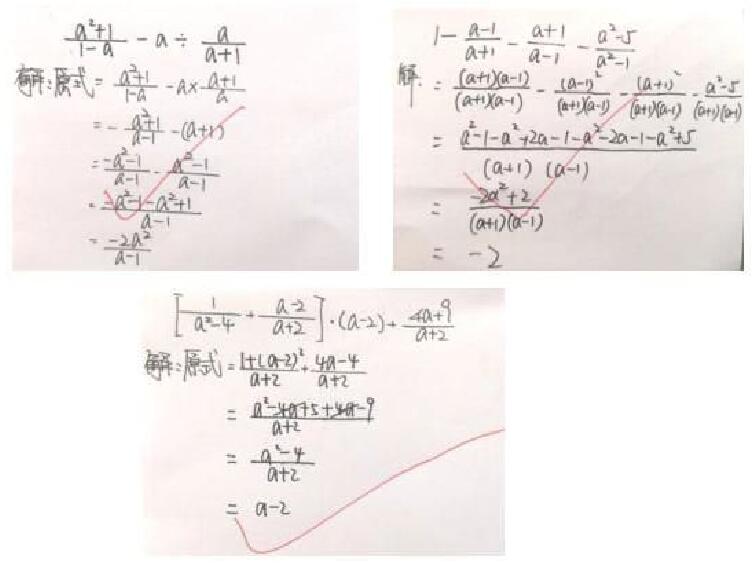 \frac{a^2+1}{1-a} - a ÷ \frac{a}{a+1}
解:原式 = \frac{a^2+1}{1-a} - a × \frac{a+1}{a}
= - \frac{a^2+1}{a-1} - (a+1)
= \frac{-a^2-1}{a-1} - \frac{a^2-1}{a-1}
= \frac{-a^2-1-a^2+1}{a-1}
= \frac{-2a^2}{a-1}
1 - \frac{a-1}{a+1} - \frac{a+1}{a-1} - \frac{a^2-5}{a^2-1}
解: = \frac{(a+1)(a-1)}{(a+1)(a-1)} - \frac{(a-1)^2}{(a+1)(a-1)} - \frac{(a+1)^2}{(a+1)(a-1)} - \frac{a^2-5}{(a+1)(a-1)}
= \frac{a^2-1-a^2+2a-1-a^2-2a-1-a^2+5}{(a+1)(a-1)}
= \frac{-2a^2+2}{(a+1)(a-1)}
= -2
[\frac{1}{a^2-4} + \frac{a-2}{a+2}]·(a-2) + \frac{4a+9}{a+2}
解:原式 = \frac{1+(a-2)^2}{a+2} + \frac{4a-4}{a+2}
= \frac{a^2-4a+5+4a-9}{a+2}
= \frac{a^2-4}{a+2}
= a-2